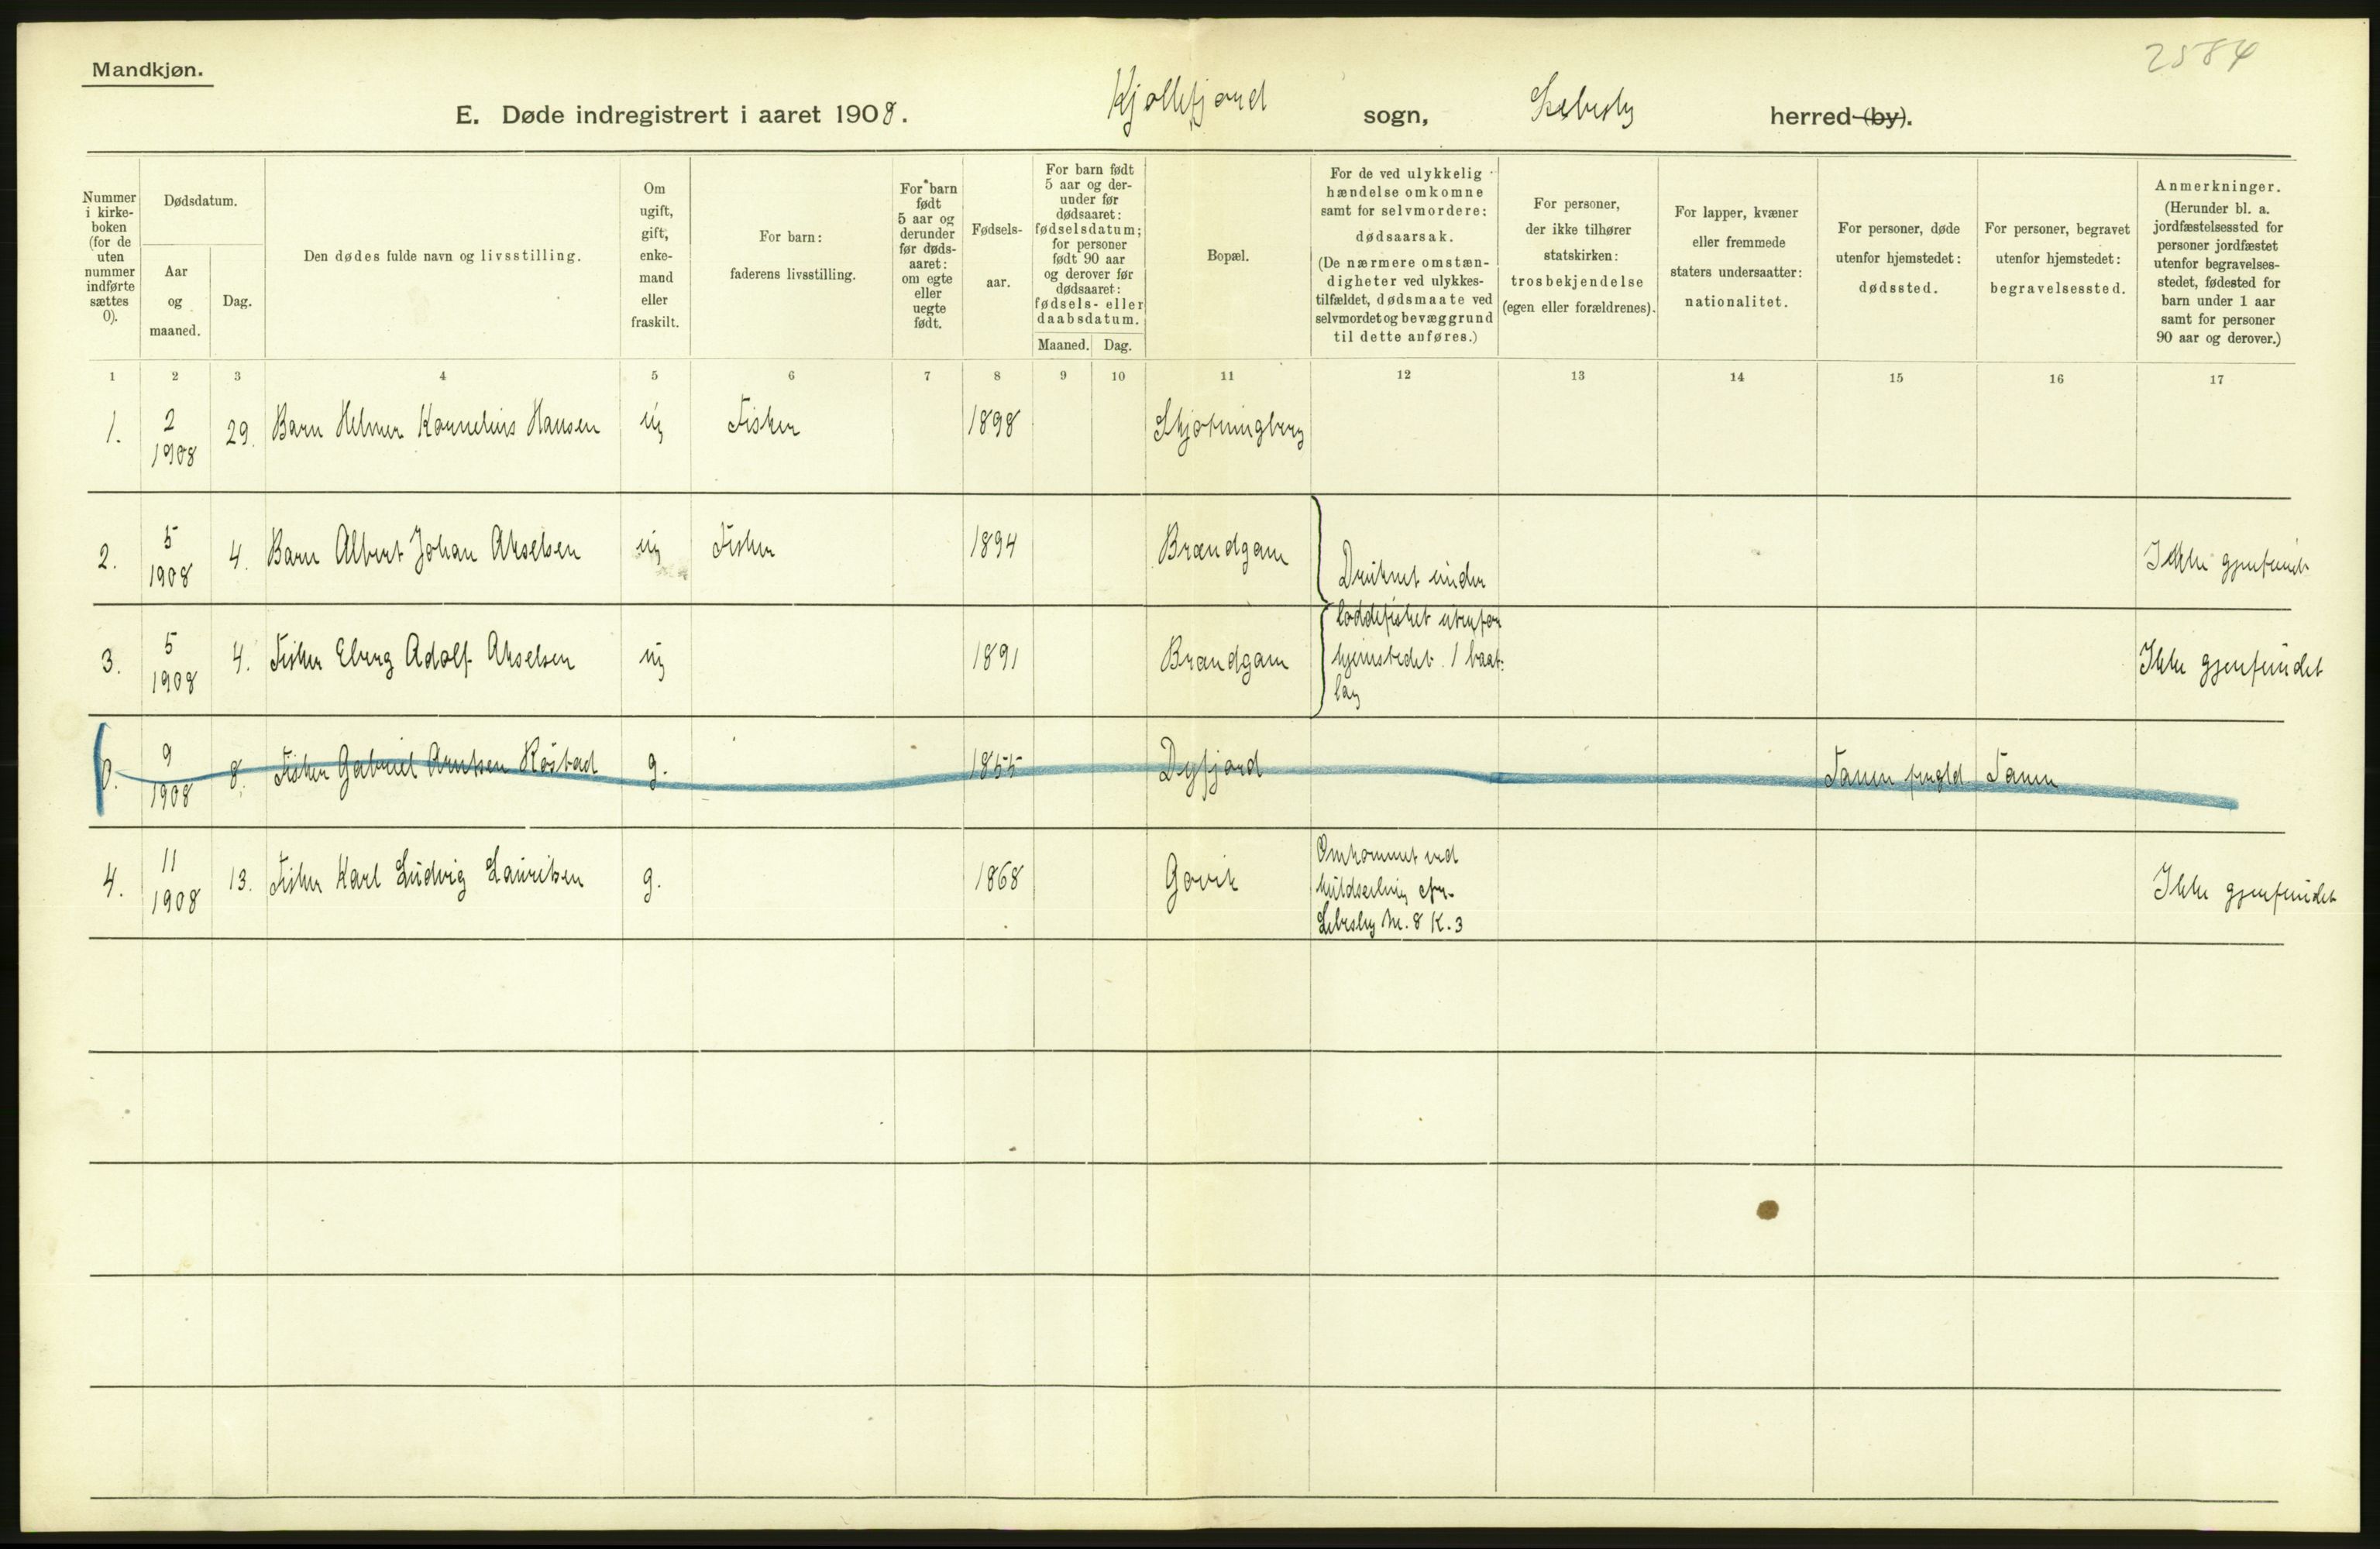 2584
Mandkjøn.
E. Døde indregistrert i aaret 1908. Kjøllefjord sogn, Lebesby herred (by).
Nummer i kirkeboken (for de uten nummer indførte sættes 0).
Dødsdatum.
Aar og maaned.
Dag.
Den dødes fulde navn og livsstilling.
Om ugift, gift, enkemand eller fraskilt.
For barn: faderens livsstilling.
For barn født 5 aar og derunder før dødsaaret: om egte eller uegte født.
Fødselsaar.
For barn født 5 aar og derunder før dødsaaret: fødselsdatum; for personer født 90 aar og derover før dødsaaret: fødsels- eller daabsdatum.
Maaned. Dag.
Bopæl.
For de ved ulykkelig hændelse omkomne samt for selvmordere: dødsaarsak. (De nærmere omstændigheter ved ulykkestilfældet, dødsmaate ved selvmordet og bevæggrund til dette anføres.)
For personer, der ikke tilhører statskirken: trosbekjendelse (egen eller forældrenes).
For lapper, kvæner eller fremmede staters undersaatter: nationalitet.
For personer, døde utenfor hjemstedet: dødssted.
For personer, begravet utenfor hjemstedet: begravelsessted.
Anmerkninger. (Herunder bl. a. jordfæstelsessted for personer jordfæstet utenfor begravelsesstedet, fødested for barn under 1 aar samt for personer 90 aar og derover.)
1 2 3 4 5 6 7 8 9 10 11 12 13 14 15 16 17
1. 2 1908 29. Barn Helmer Kornelius Hansen ug Fisker 1898 Skjøtningberg
2. 5 1908 4. Barn Albert Johan Akselsen ug Fisker 1894 Brændgam Druknet under Ikke gjenfundet
3. 5 1908 4. Fisker Eberg Adolf Akselsen ug 1891 Brændgam loddefisket utenfor hjemstedet. 1 baatlag Ikke gjenfundet
0. 9 1908 8. Fisker Gabriel Arntsen Røstad g. 1855 Dyfjord Tanen Tanen
4. 11 1908 13. Fisker Karl Ludvig Lauritsen g. 1868 Gavik Omkommet ved kuldseiling cfr. Lebesby Nr. 8 K. 3 Ikke gjenfundet